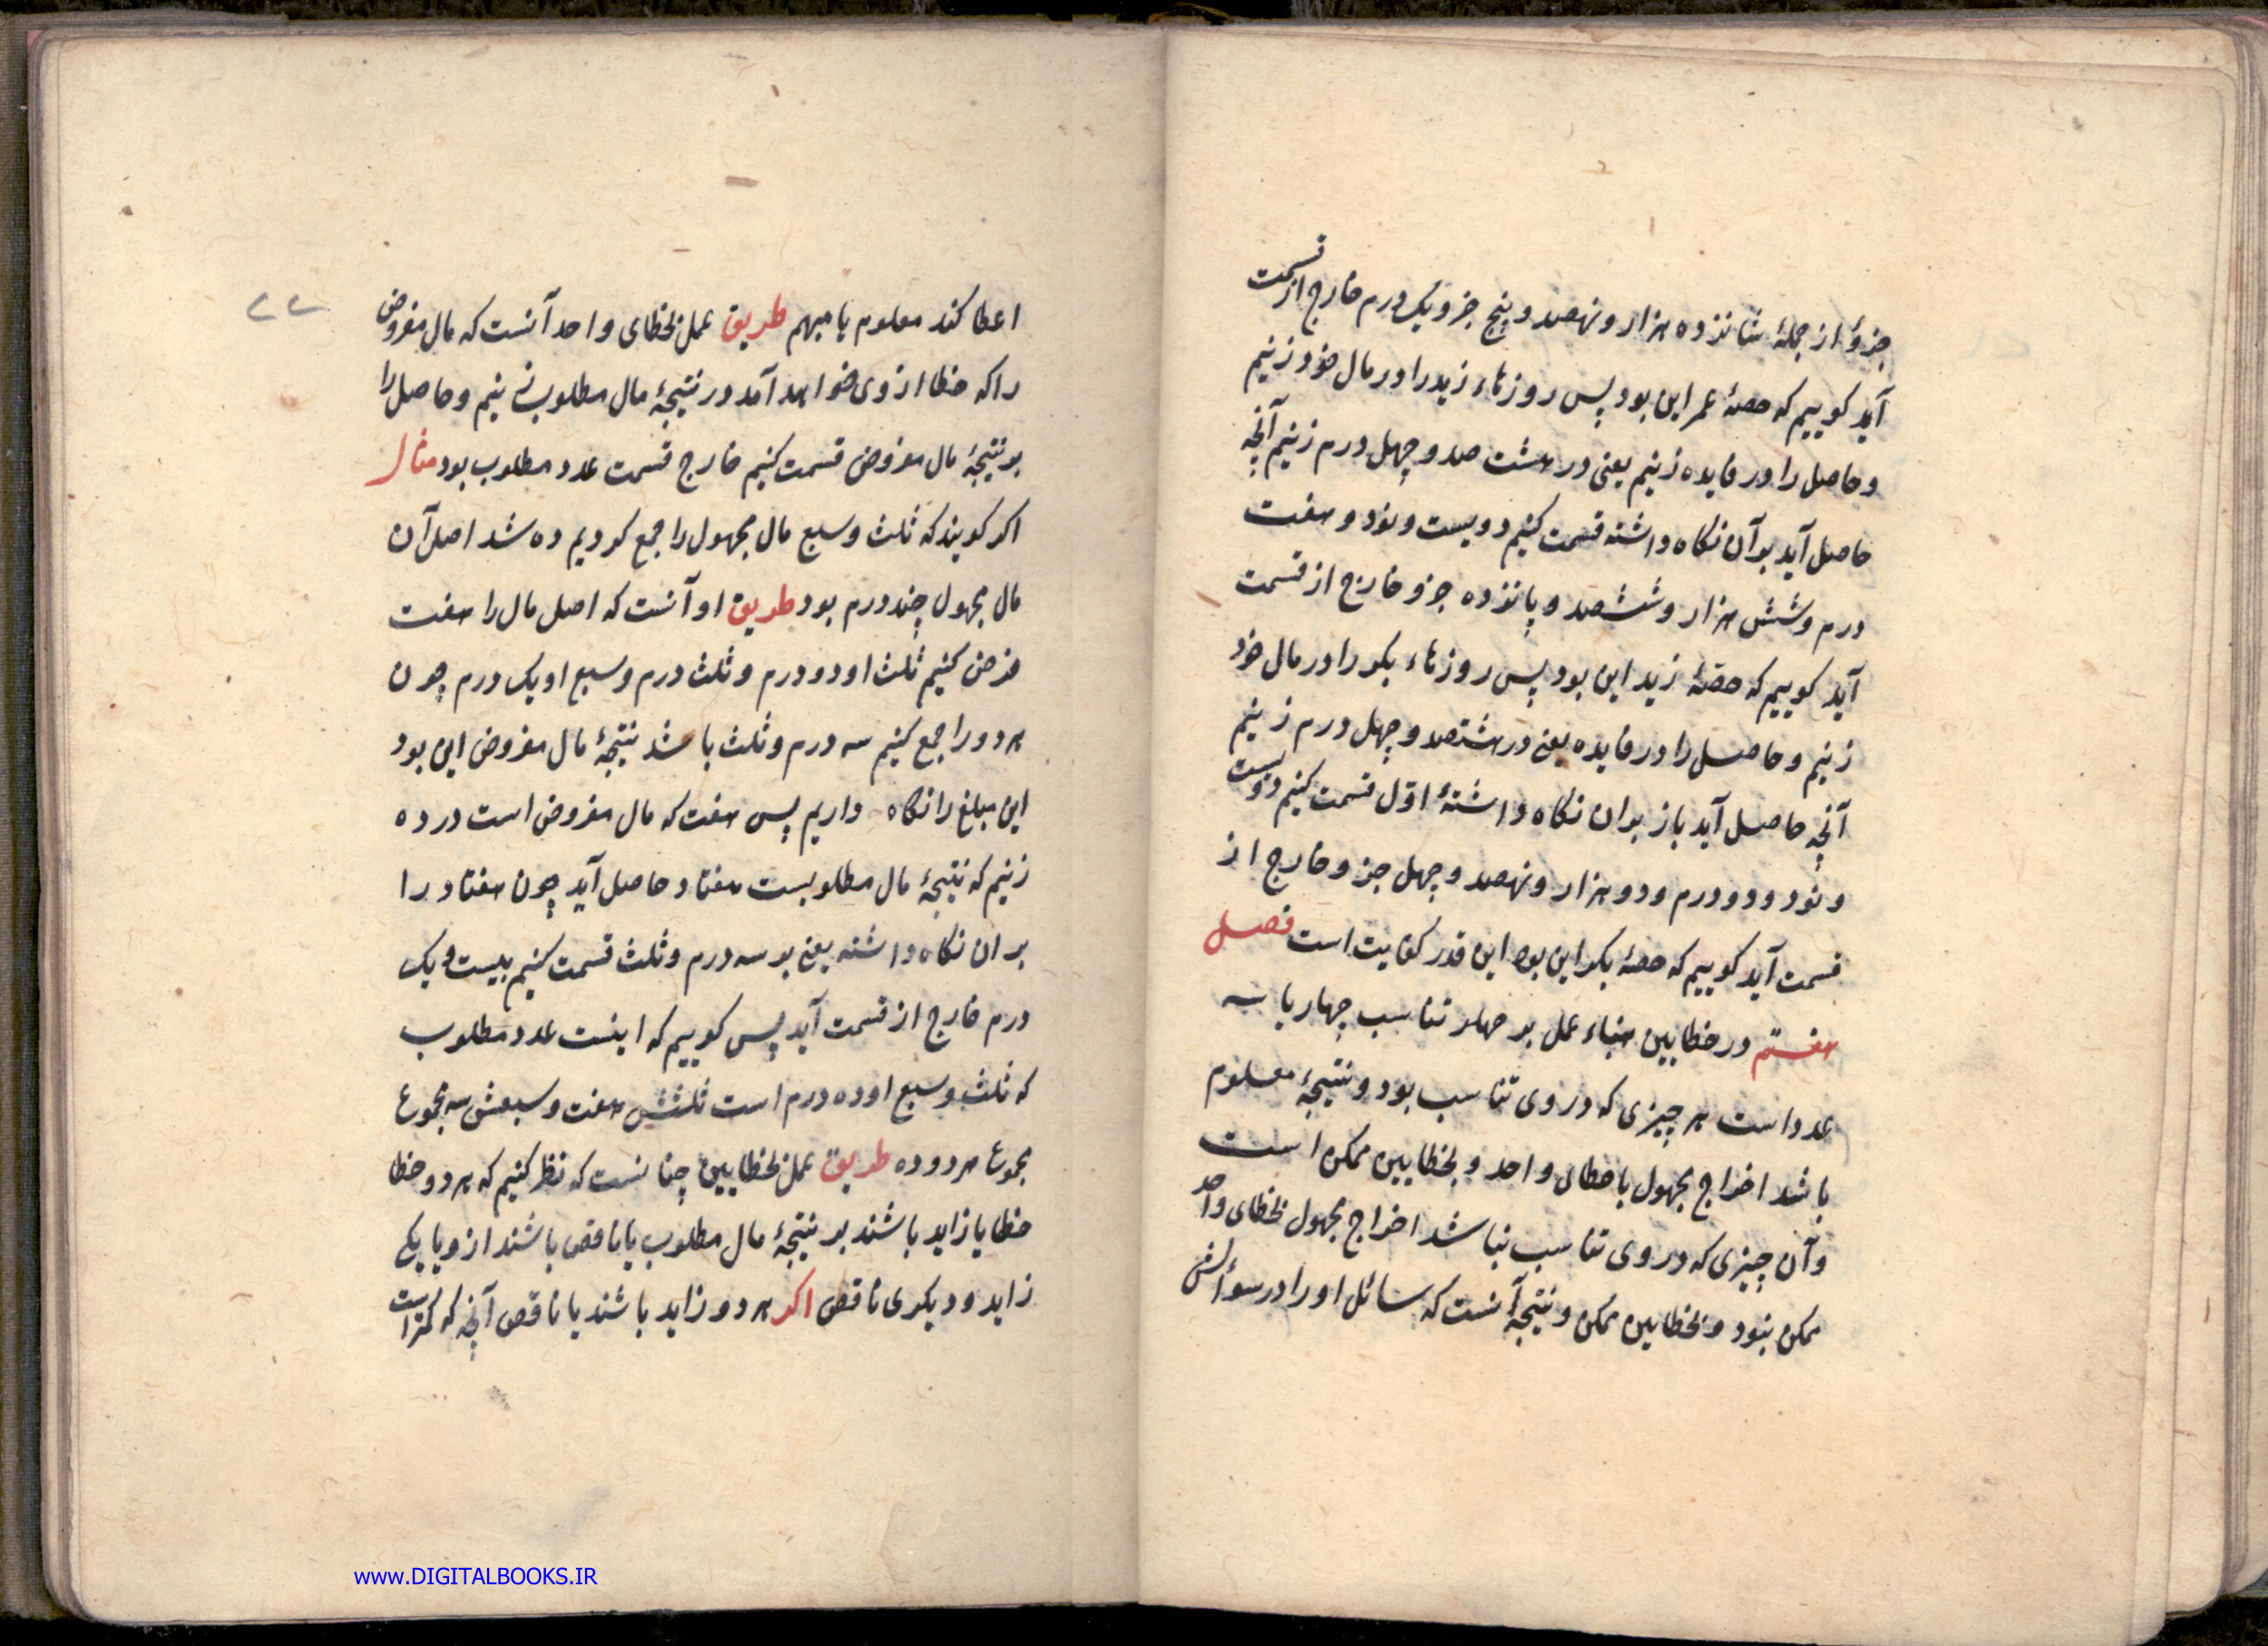 جزؤ از جملهٔ شانزده هزار و نهصد و پنج جزو یک درم خارج از قسمت
آید کوییم که حصهٔ عمر این بود پس روزهاء زید را در مال خود زنیم
و حاصل را در فایده زنیم یعنی در هشت صد و چهل درم زنیم آنچه
حاصل آید بر آن نکاه داشته قسمت کنیم دویست و نود و هفت
درم و شش هزار و ششصد و پانزده جزو خارج از قسمت
آید کوییم که حصّهٔ زید این بود پس روزهاء بکر را در مال خود
زنیم و حاصل را در فایده یعنی در هشتصد و چهل درم زنیم
آنچه حاصل آید باز بران نکاه داشتهٔ اوّل قسمت کنیم دویست
و نود و دو درم و دو هزار و نهصد و چهل جزو خارج از
قسمت آید کوییم که حصهٔ بکر این بود این قدر کفایت است فصل
هفتم در خطایین بناء عمل بر تناسب چهار یا سه
عدد است هر چیزی که در وی تناسب بود و نتیجهٔ معلوم
باشد اخراج مجهول باخطای واحد و بخطایین ممکن است
و آن چیزی که در وی تناسب نباشد اخراج مجهول بخطای واحد
ممکن نبود و بخطایین ممکن و نتیجه آنست که سائل او را در سوٴالش
۲۲
اعطا کند معلوم یا مبهم طریق عمل بخطای واحد آنست که مال مفروض
را که خطا از وی خواهد آمد در نتیجهٔ مال مطلوب زنیم و حاصل را
بر نتیجهٔ مال مفروض قسمت کنیم خارج قسمت عدد مطلوب بود مثال
اکر کویند که ثلث و سبع مال مجهول را جمع کردیم ده شد اصل آن
مال مجهول چند درم بود طریق او آنست که اصل مال را هفت
فرض کنیم ثلث او دو درم و ثلث درم و سبع او یک درم چون
هر دو را جمع کنیم سه درم و ثلث باشد نتیجهٔ مال مفروض این بود
این مبلغ را نکاه داریم پس هفت که مال مفروض است در ده
زنیم که نتیجهٔ مال مطلوبست هفتاد حاصل آید چون هفتاد را
بران نکاه داشته یعنی بر سه درم و ثلث قسمت کنیم بیست و یک
درم خارج از قسمت آید پس کوییم که اینست عدد مطلوب
که ثلث و سبع او ده درم است ثلثش هفت و سبعش سه مجموع
مجموع هر دو ده طریق عمل بخطایین چنانست که نظر کنیم که هر دو خطا
خطا یا زاید باشند بر نتیجهٔ مال مطلوب یا ناقص باشند ازو یا یکی
زاید و دیکری ناقص اکر هر دو زاید باشند یا ناقص آنچه که کمتر است
www.DIGITALBOOKS.IR